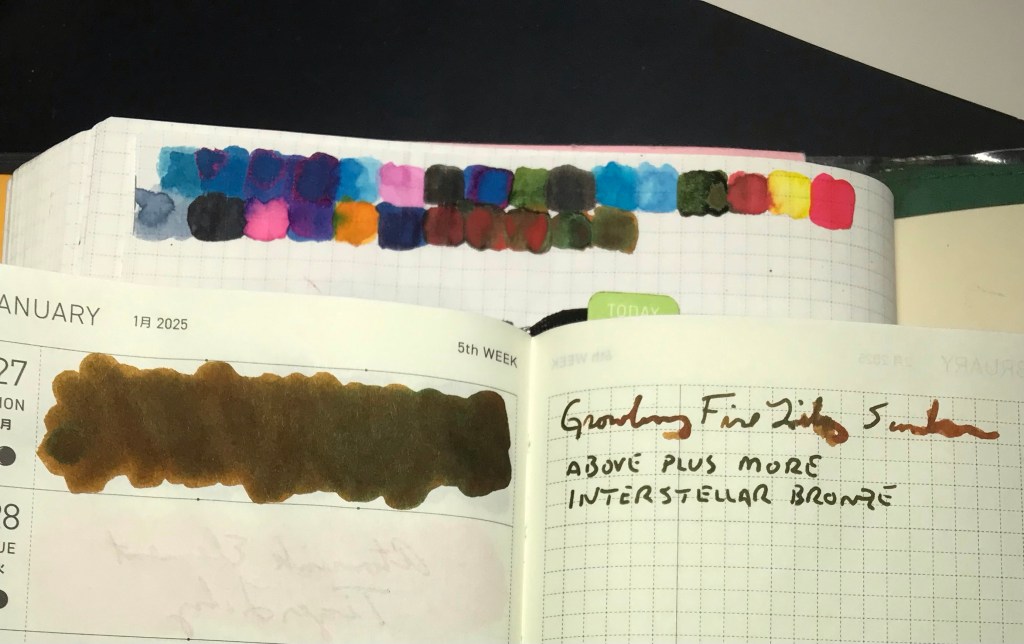 TODAY
ANUARY 1月 2025
5th WEEK
27
ON
月
28
UE
Growling Fire
ABOVE PLUS MORE
INTERSTELLAR BRONZE